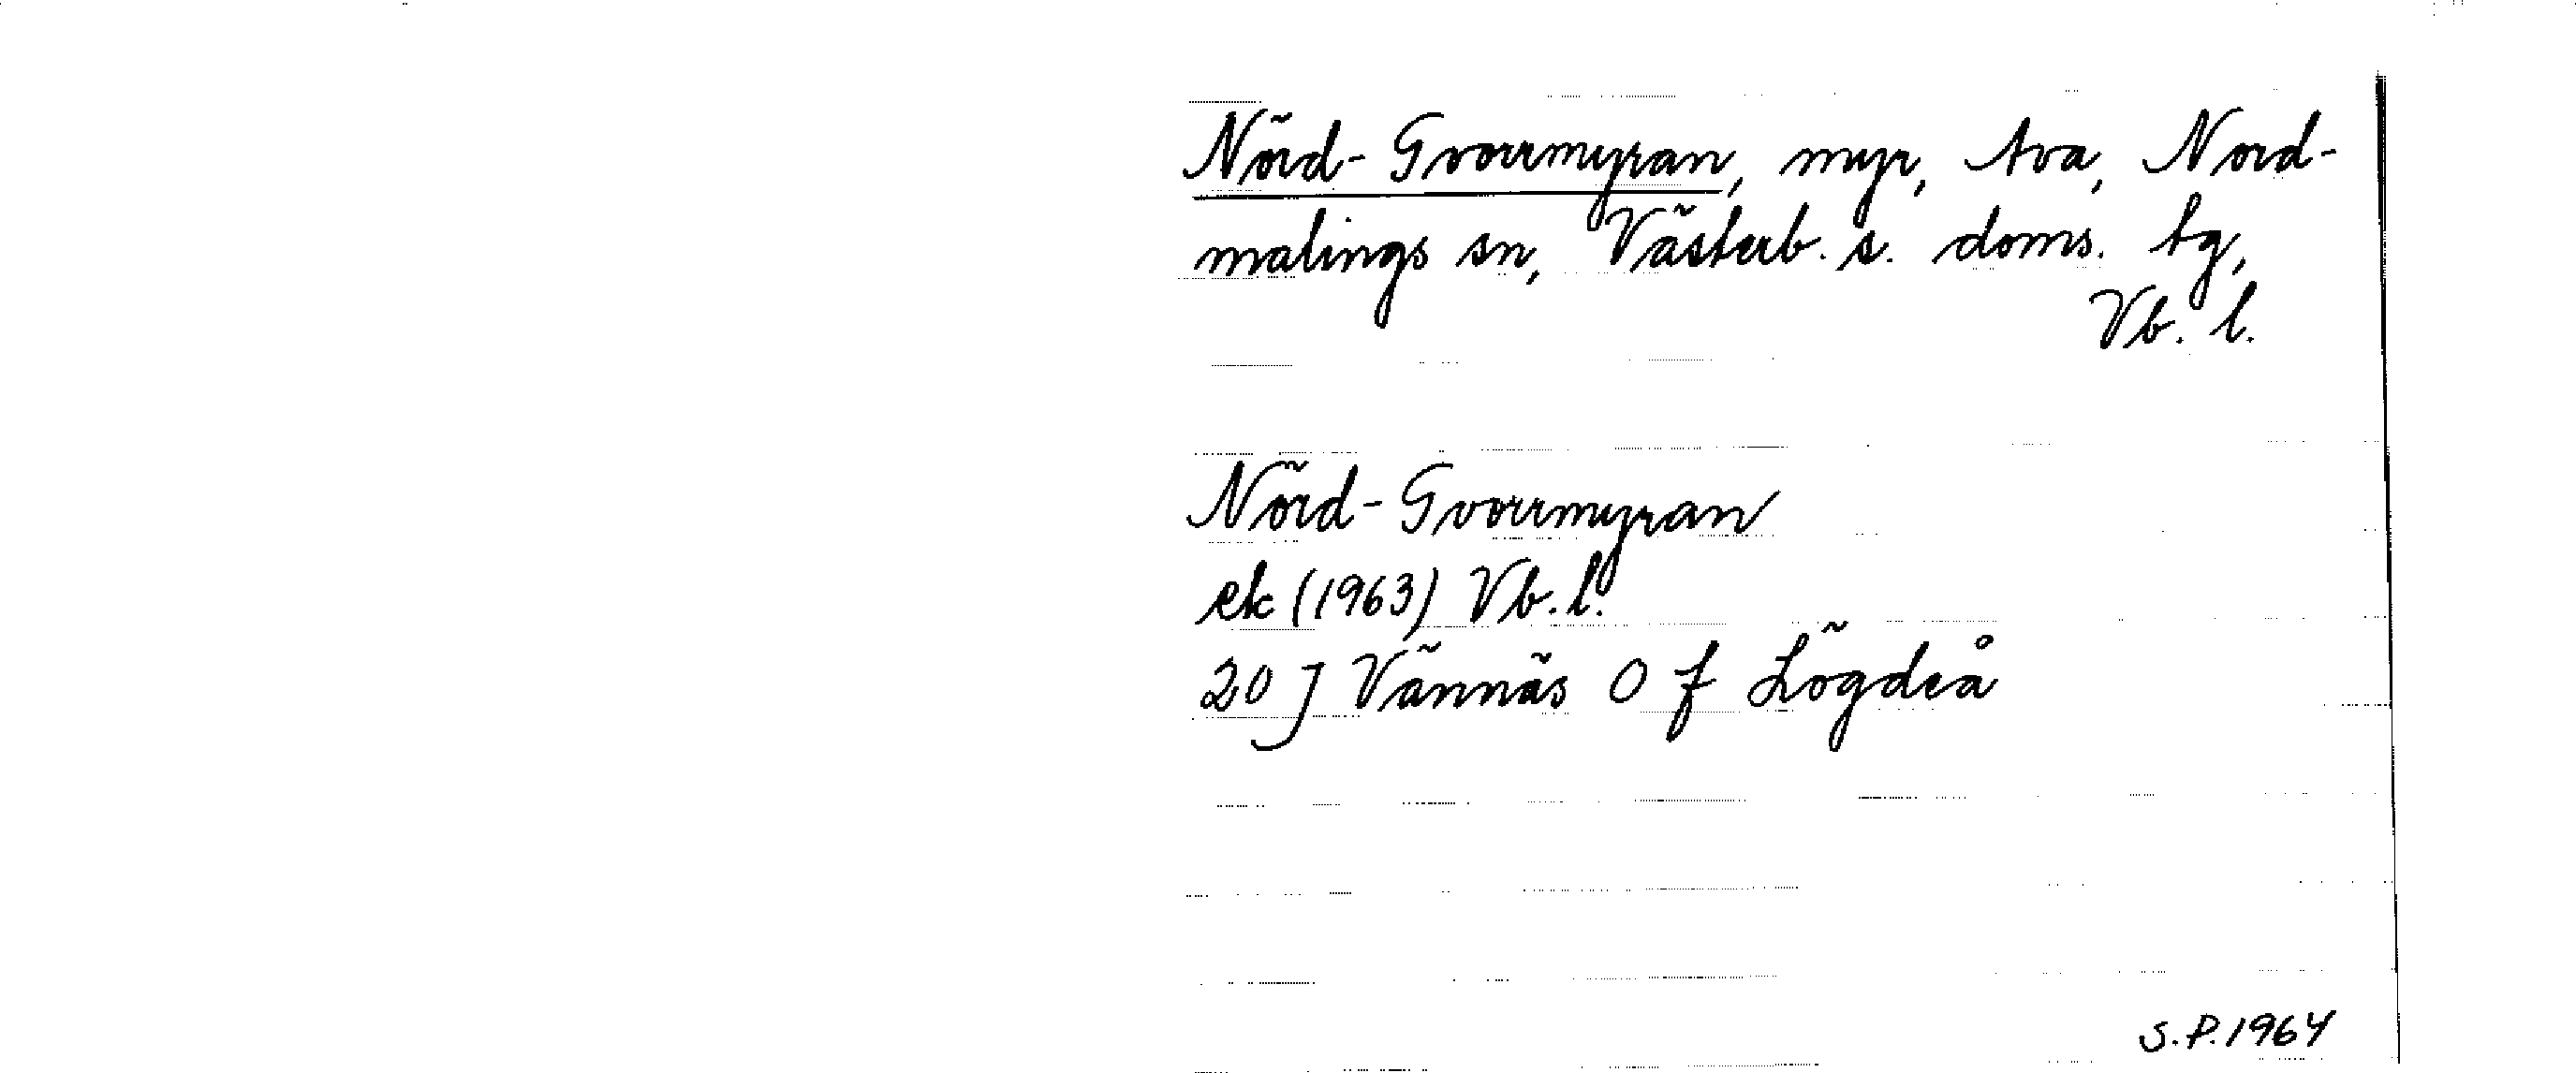 Nörd-Gvorrmyran, myr, Ava, Nord-
malings sn, Västerb. s. doms. tg,
Vb. l.
Nörd-Gvorrmyran
ek (1963) Vb. l.
20 J Vännäs O f Lögdeå
S.P. 1964